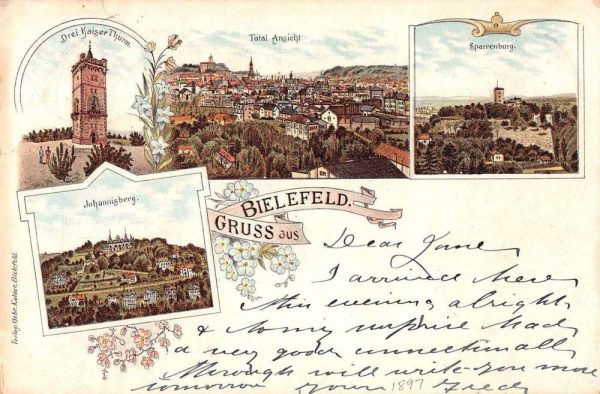 Drei Kaiser Thurm.
Total Ansicht
Sparrenburg.
Johannisberg.
GRUSS aus
BIELEFELD.
Verlag: Gebr. Kaiser, Bielefeld.
Dear Jane
I arrived here
this evening alright
& to my surprise had
a very good connection all
through will write you more
tomorrow yours Fred
1897